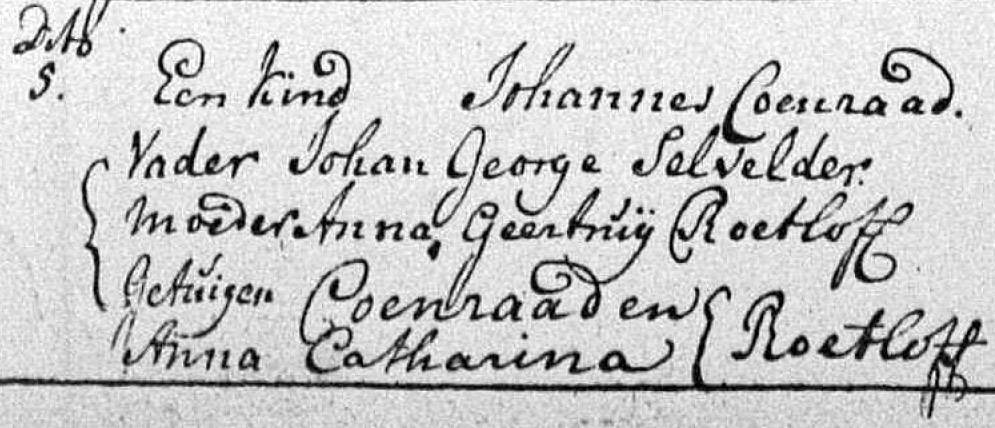 Dito
5. Een kind Johannes Coenraad.
Vader Johan George Selvelder.
Moeder Anna Geertruij Roetloff
Getuigen Coenraad en
Anna Catharina Roetloff